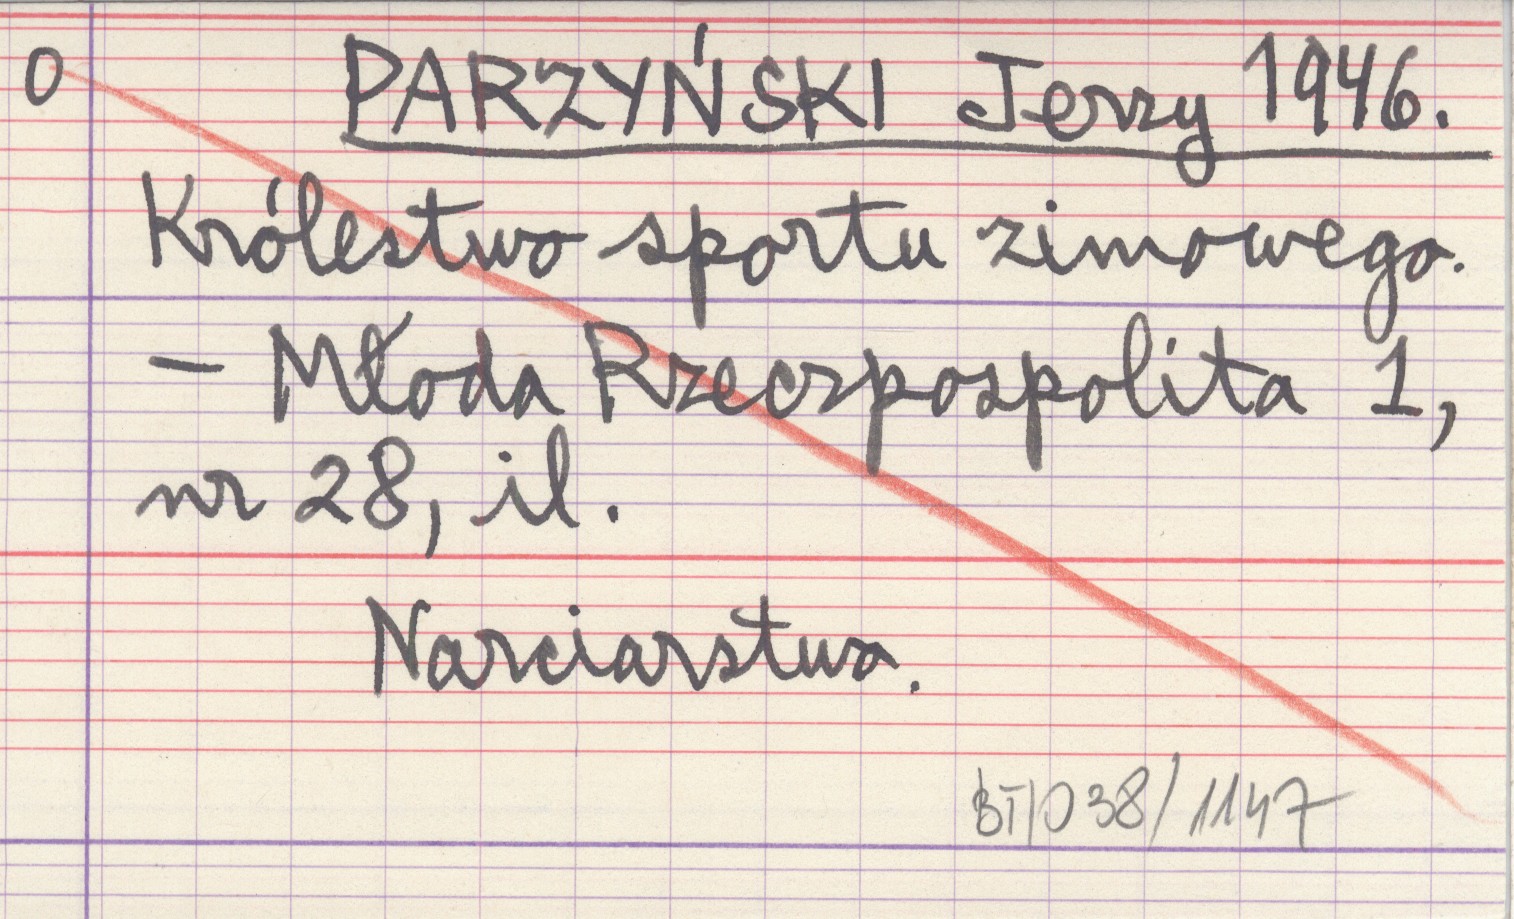 O PARZYŃSKI Jerzy 1946.
Królestwo sportu zimowego.
– Młoda Rzeczpospolita 1,
nr 28, il.
Narciarstwo.
BT/038/1147